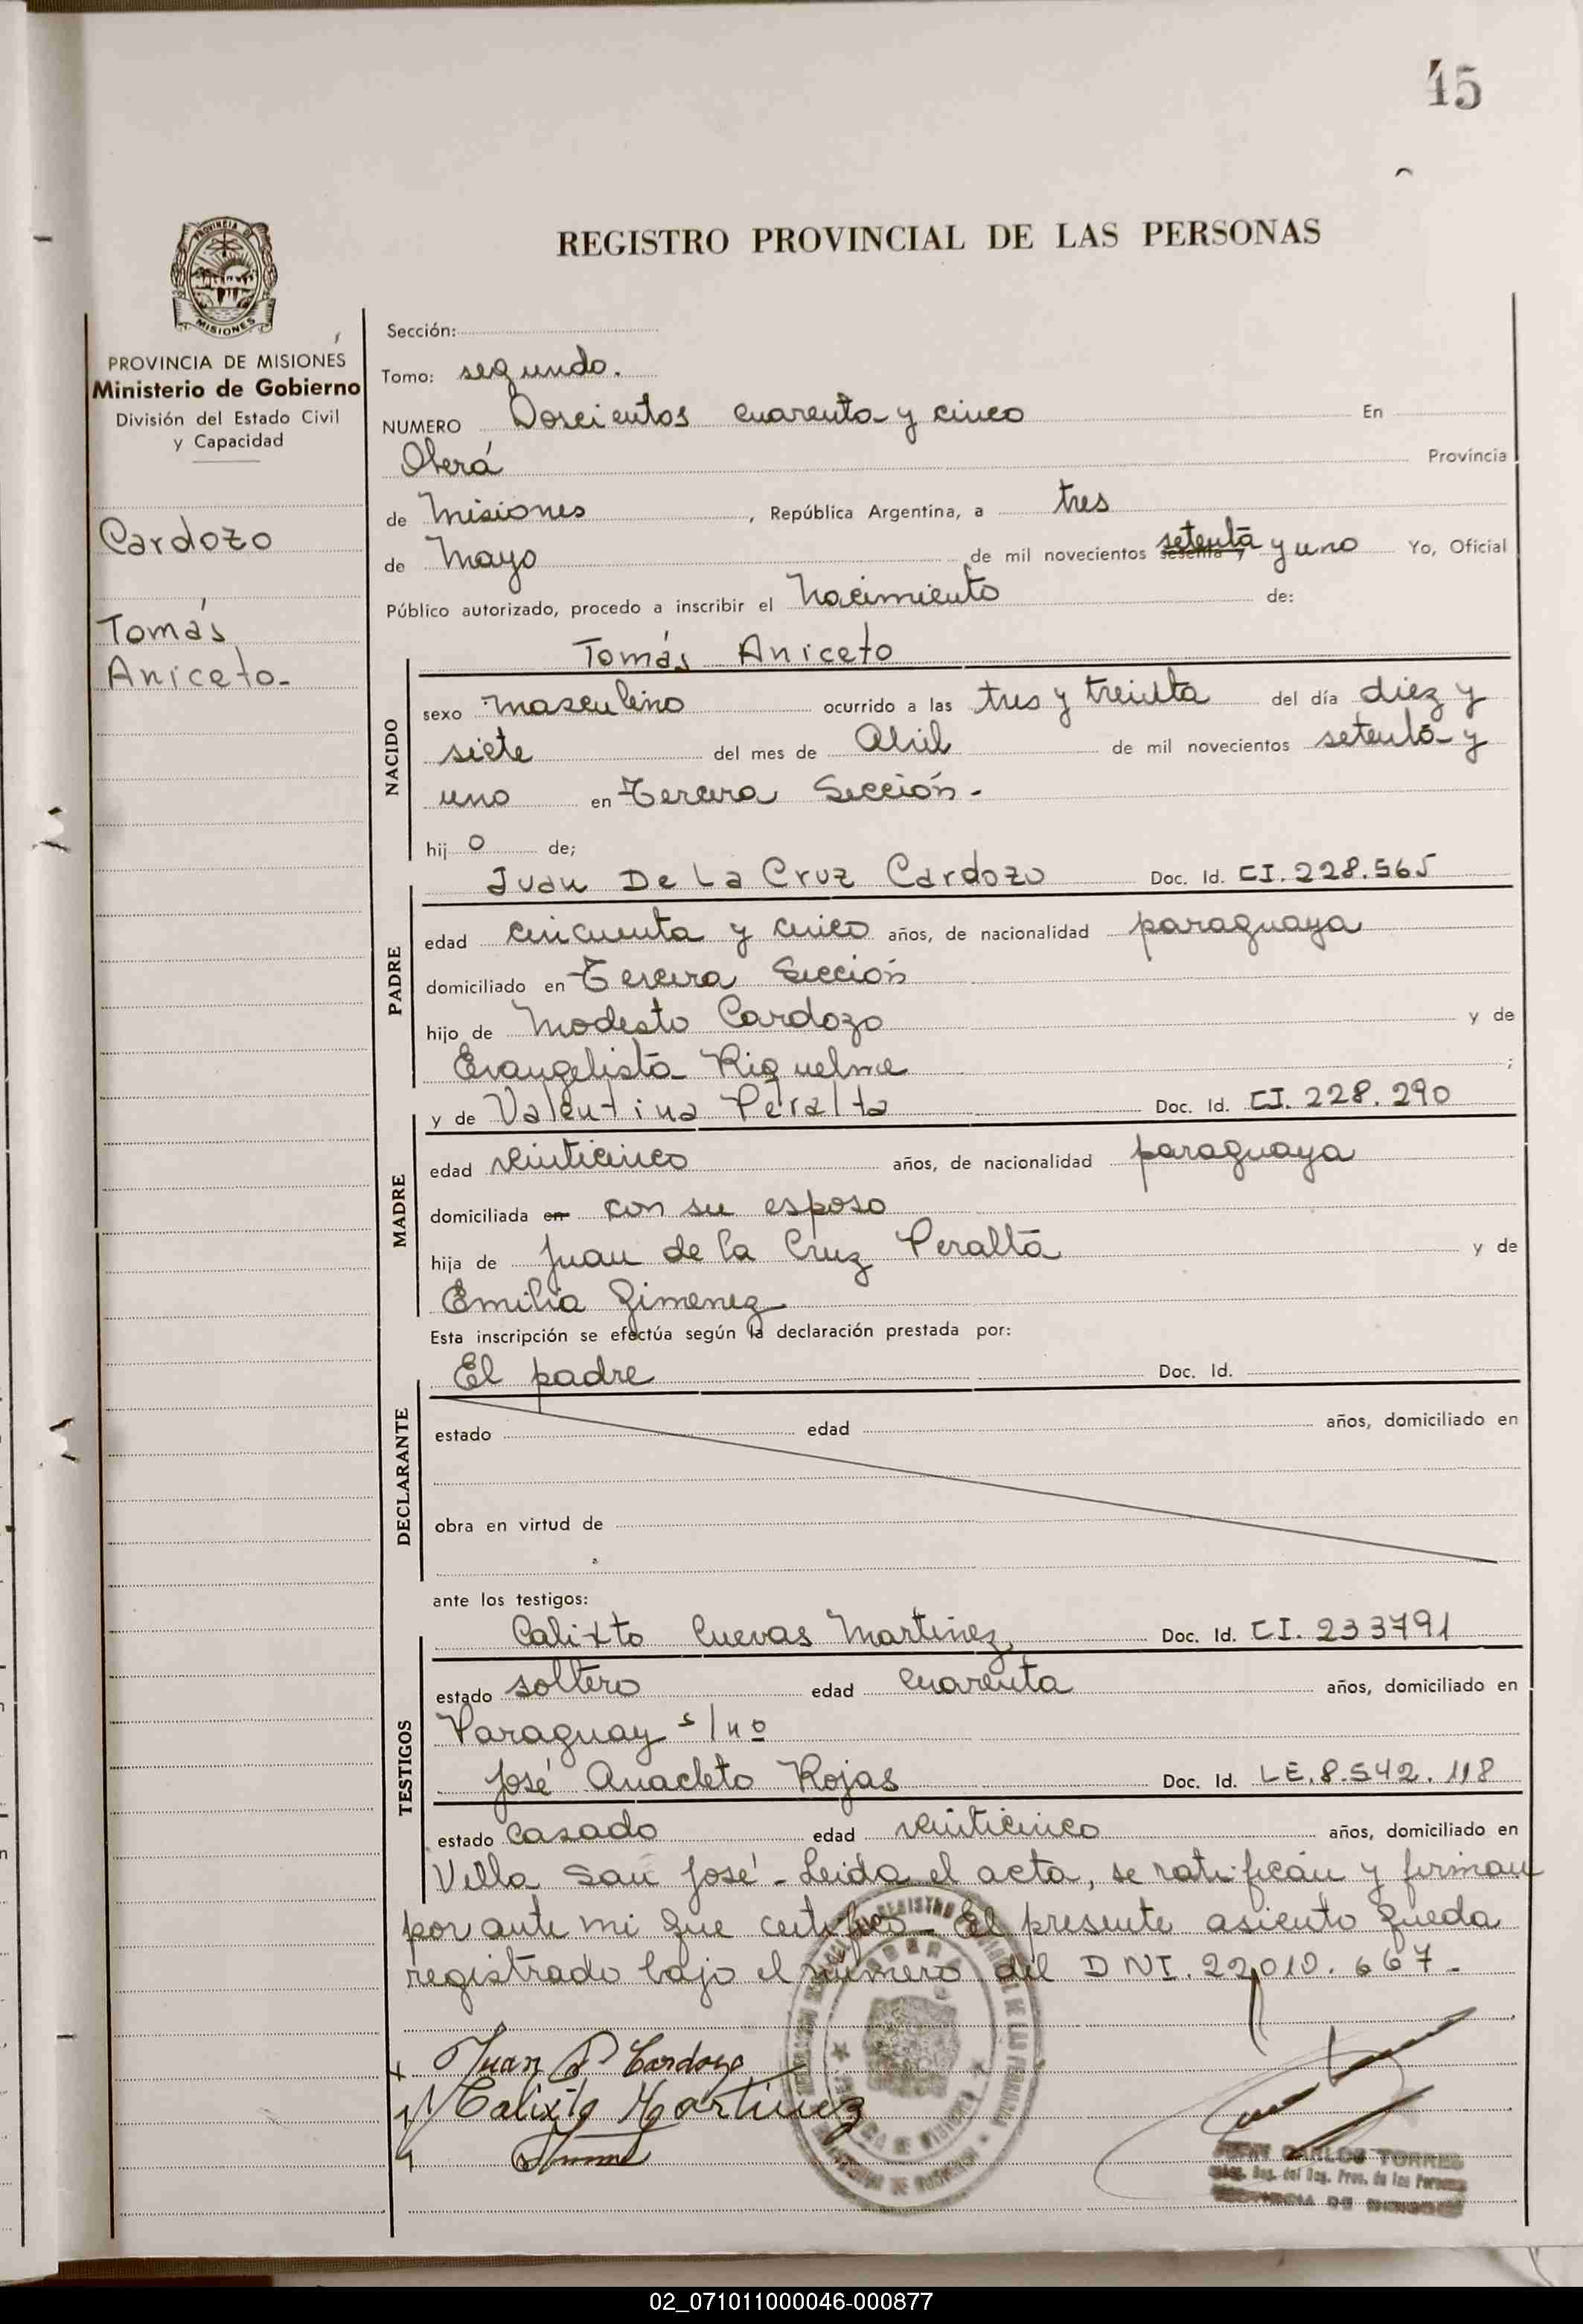 45
REGISTRO PROVINCIAL DE LAS PERSONAS
PROVINCIA DE MISIONES
Ministerio de Gobierno
División del Estado Civil
y Capacidad
Cardozo
Tomás
Aniceto-
Sección:
Tomo: segundo.
NUMERO Doscientos cuarenta y cinco En
Oberá Provincia
de Misiones, República Argentina, a tres
de Mayo de mil novecientos setenta y uno Yo, Oficial
Público autorizado, procedo a inscribir el Nacimiento de:
Tomás Aniceto
NACIDO
sexo masculino ocurrido a las tres y treinta del día diez y
siete del mes de Abril de mil novecientos setenta y
uno en Tercera Sección.-
hij o de;
Juan De La Cruz Cardozo Doc. Id. CI. 228.565
PADRE
edad cincuenta y cinco años, de nacionalidad paraguaya
domiciliado en Tercera Sección
hijo de Modesto Cardozo y de
Evangelista Riquelme ;
y de Valentina Peralta Doc. Id. CI. 228.290
MADRE
edad veinticinco años, de nacionalidad paraguaya
domiciliada en con su esposo
hija de Juan de la Cruz Peralta y de
Emilia Gimenez
Esta inscripción se efectúa según la declaración prestada por:
El padre Doc. Id.
DECLARANTE
estado edad años, domiciliado en
obra en virtud de
ante los testigos:
Calixto Cuevas Martinez Doc. Id. CI. 233791
TESTIGOS
estado soltero edad cuarenta años, domiciliado en
Paraguay s/nº
José Anacleto Rojas Doc. Id. LE. 8.542.118
estado casado edad veinticinco años, domiciliado en
Villa San José - Leida el acta, se ratifican y firman
por ante mi que certifico - El presente asiento queda
registrado bajo el número del DNI. 22.010.667-
Juan D. Cardozo
Calixto Martinez
CARLOS TORRES
del Reg. Prov. de las Personas
02_071011000046-000877